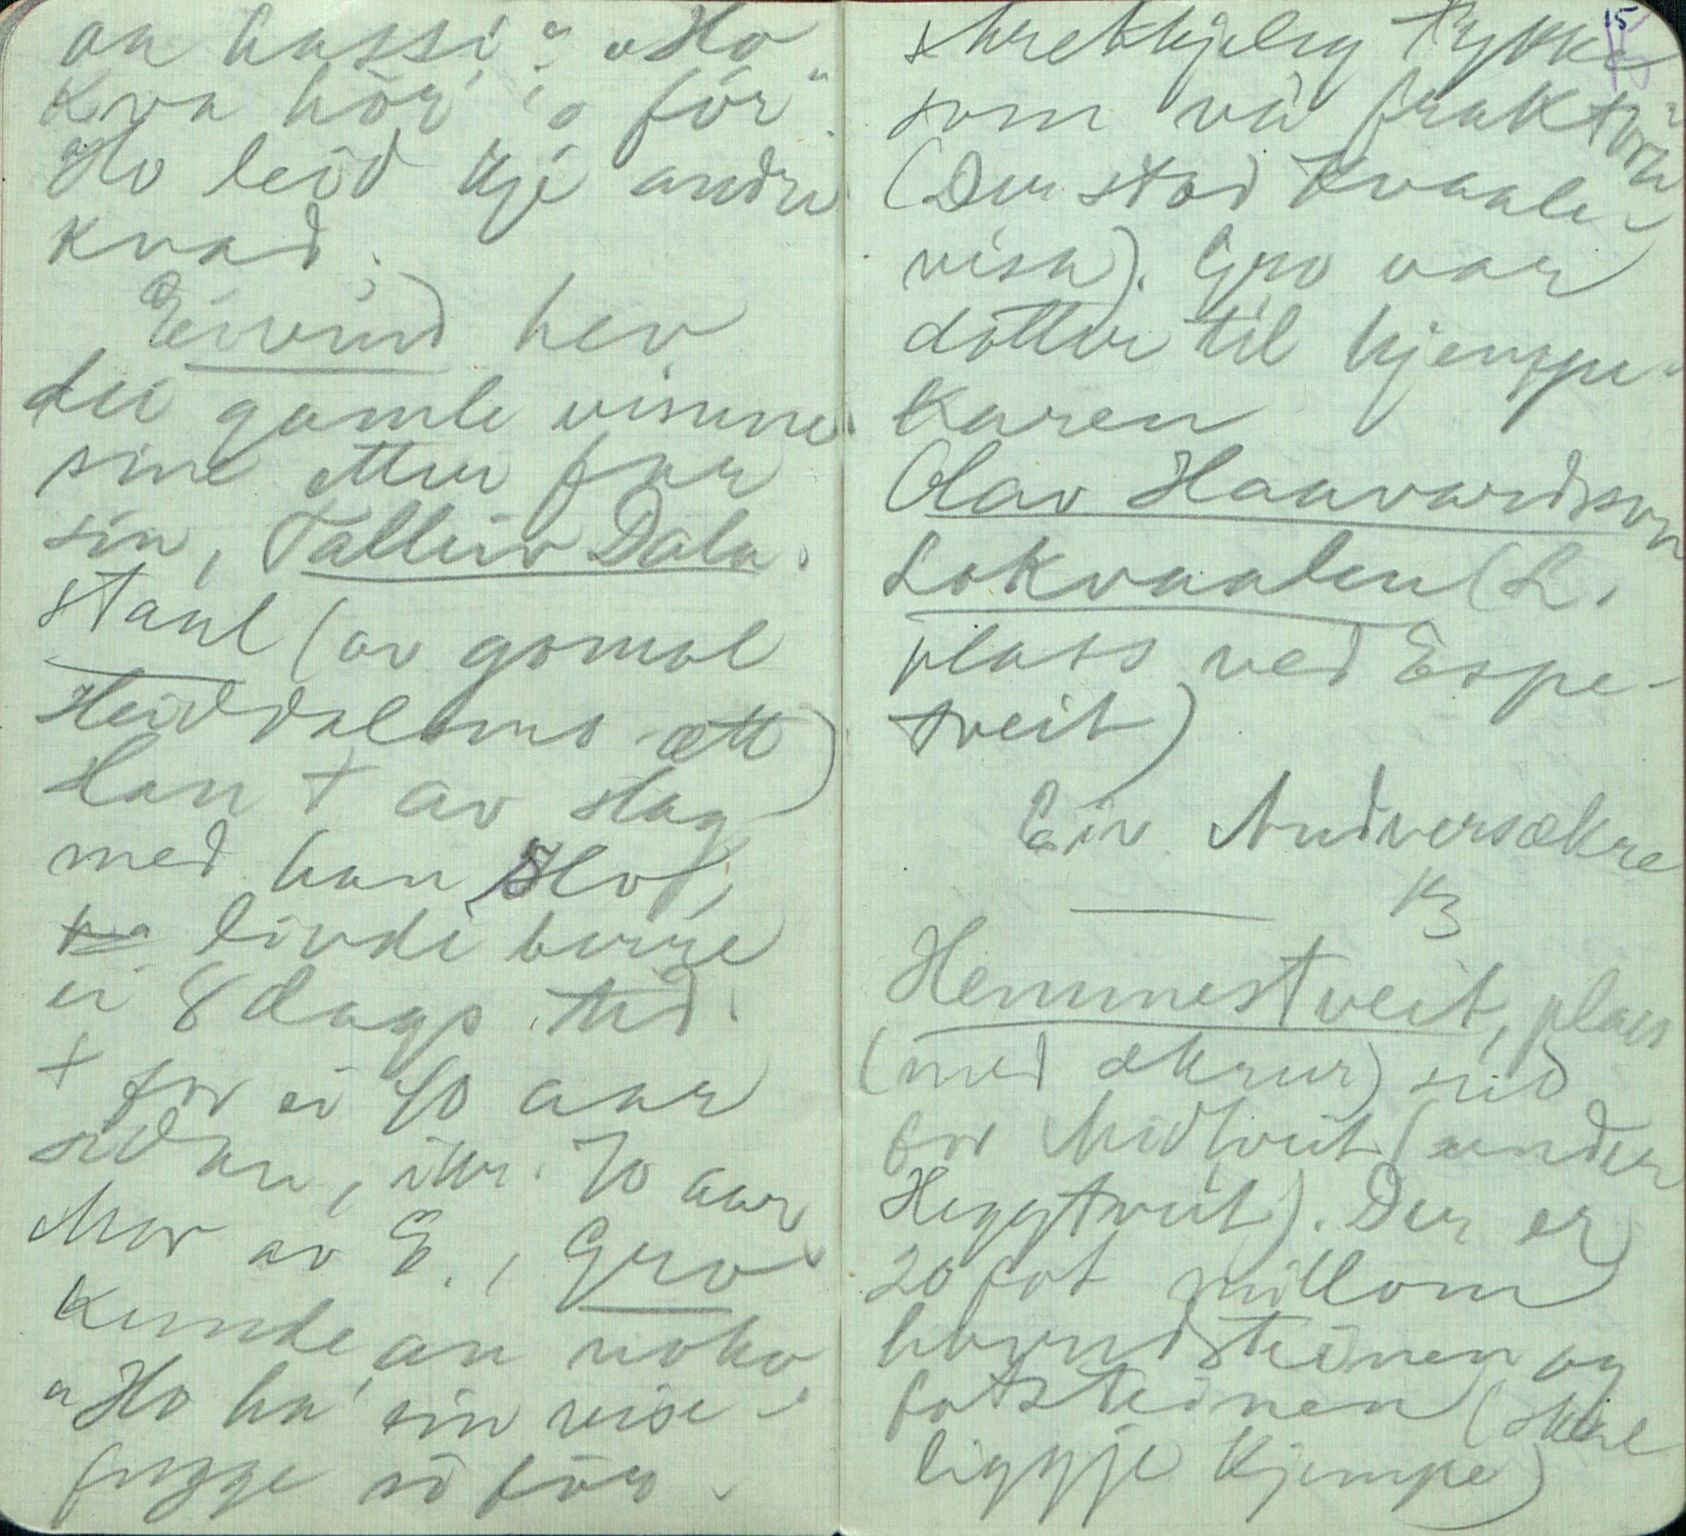 an hassi" "Ho
Kva hör 'o för"
Ho leid kje andre
kvad.
Eivind hev
dei gamle visune
sine etter far
sin, Talleiv Dala-
staul (av gomol
Heiddalsms ætt)
Han † av slag
med han
livde berre
ei 8 dags tid.
† for ei 40 aar
sidan, 70 aar
Mor av E., Gro
Kunde an noko,
"Ho ha' ein vise-
fugge so för.
15
skrekkjeleg tjukke
som va
(Der stod Kvaale-
visa). Gro var
dotter til kjempe-
Karen
Olav Haavardsson
Lokvaalen (L.
plass ved Espe-
tveit)
Eiv Andversækre
Hemmestveit, plass
(med ækrur) sud
for Midtveit (under
Heggtveit). Der er
20 fot millom
hovudsteinen og
fotsteinen (skal
liggje Kjempe)